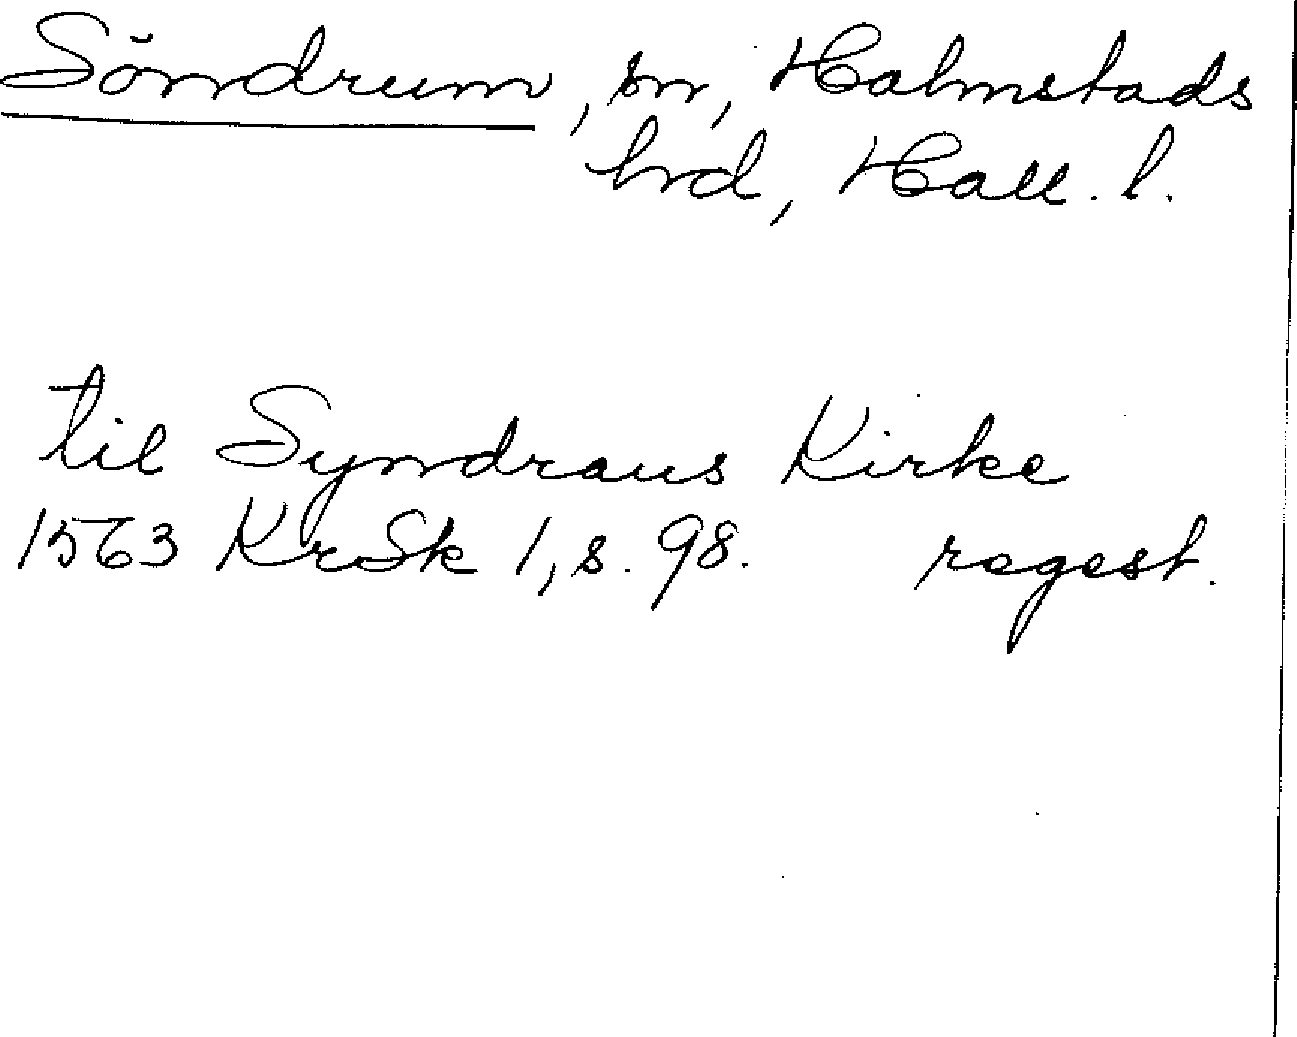 Söndrum, sn, Halmstads
hrd, Hall. l.
til Syndraus Kirke
1563 KrSk 1, s. 98. regest.